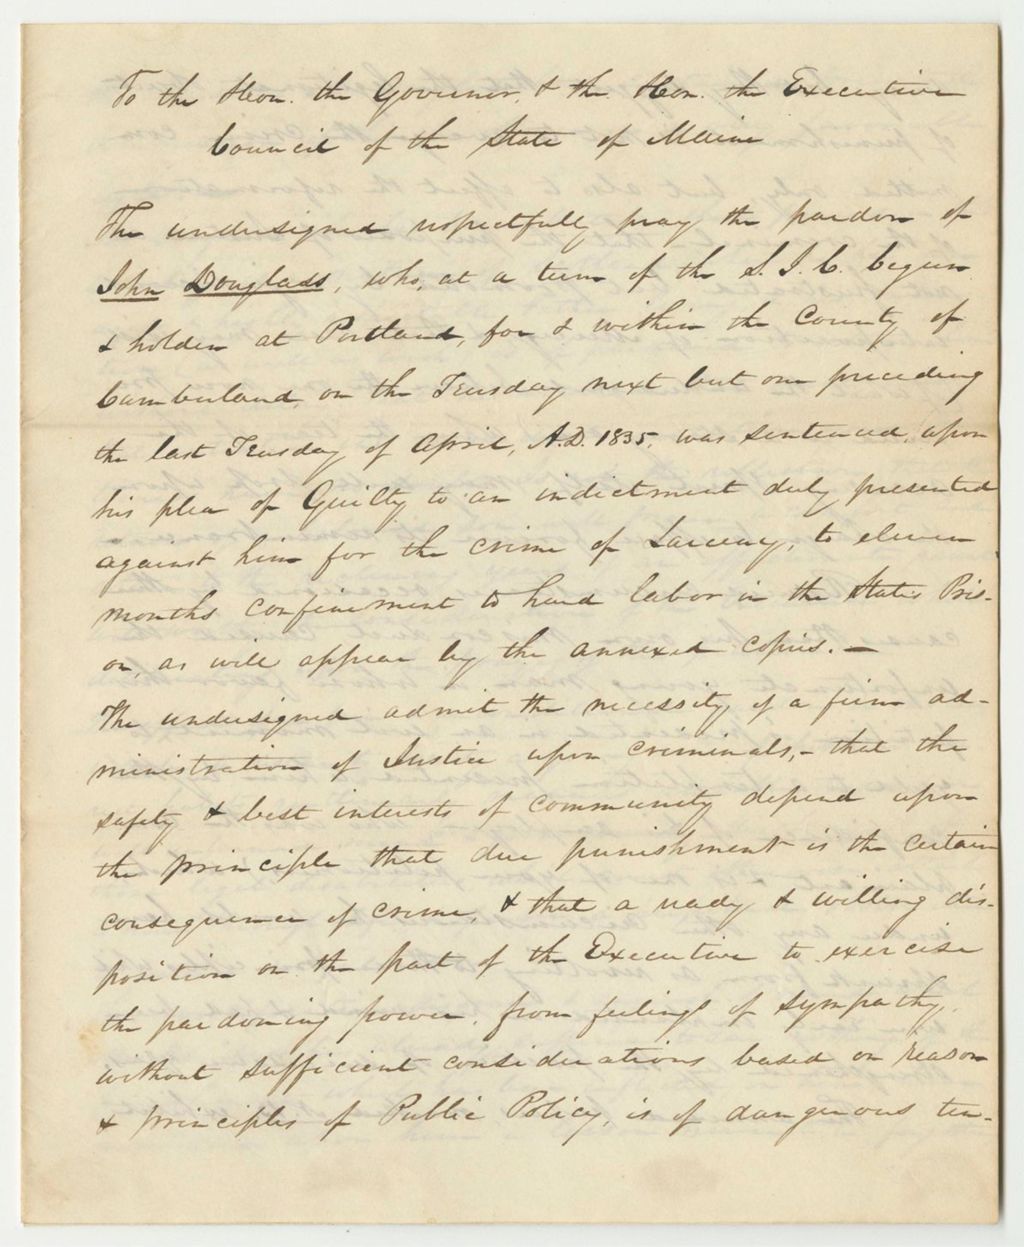 To the Hon. the Governor, & the Hon. the Executive
Council of the State of Maine
The undersigned respectfully pray the pardon of
John Douglass, who, at a term of the S. J. C. begun
& holden at Portland, for & within the County of
Cumberland, on the Teusday next but one preceding
the last Teusday of April, A.D. 1835, was sentenced, upon
his plea of Guilty to an indictment duly presented
against him for the crime of Larceny, to eleven
months confinement to hard labor in the State's Pris-
on, as will appear by the annexed copies. —
The undersigned admit the necessity of a firm ad-
ministration of Justice upon criminals, - that the
safety & best interests of community depend upon
the principle that due punishment is the certain
consequence of crime, & that a ready & willing dis-
position on the part of the Executive to exercise
the pardoning power, from feelings of sympathy,
without sufficient considerations based on reason
& principles of Public Policy, is of dangerous ten-